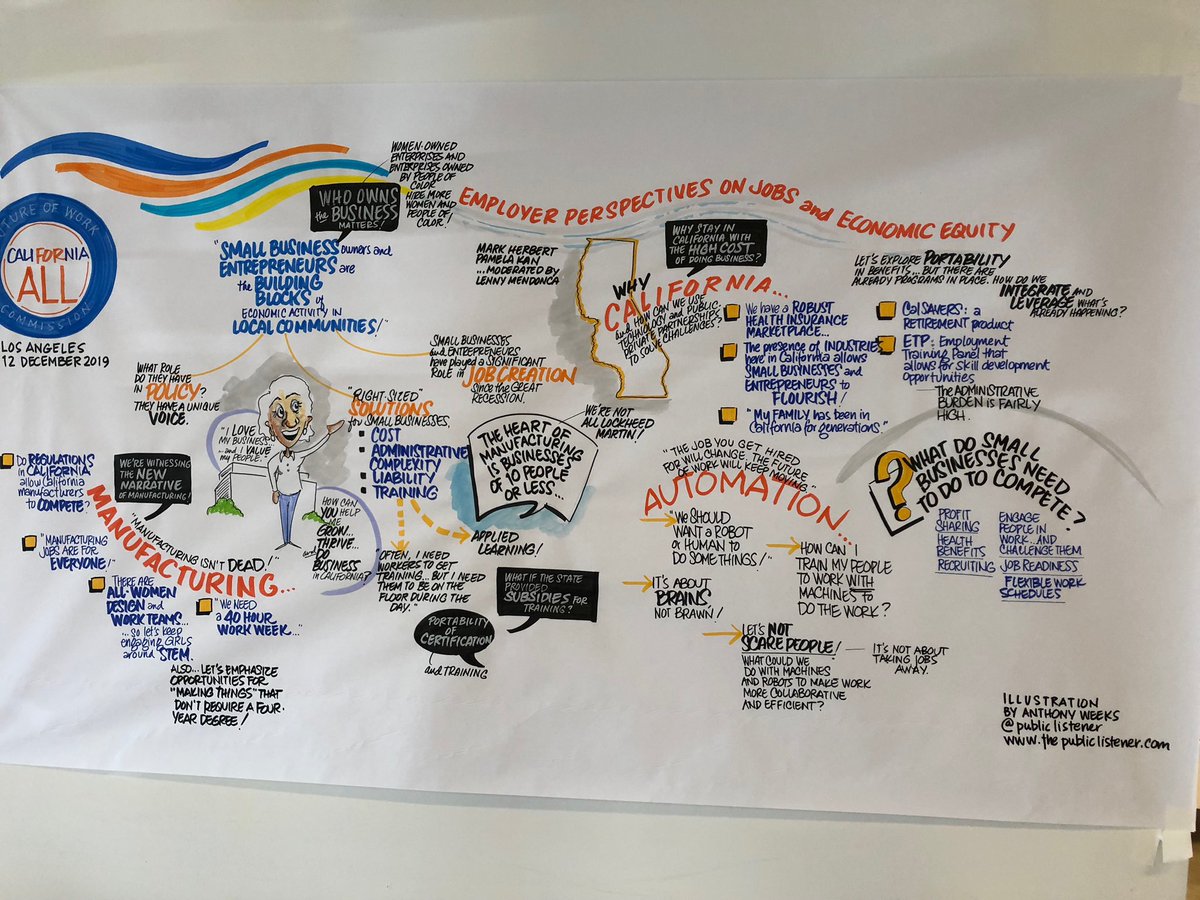 FUTURE OF WORK
CALIFORNIA
ALL
COMMISSION
LOS ANGELES
12 DECEMBER 2019
EMPLOYER PERSPECTIVES ON JOBS and ECONOMIC EQUITY
MARK HERBERT
PAMELA KAN
...MODERATED BY
LENNY MENDONCA
WOMEN-OWNED
ENTERPRISES AND
ENTERPRISES OWNED
BY PEOPLE OF
COLOR
HIRE MORE
WOMEN AND
PEOPLE OF
COLOR!
WHO OWNS
the BUSINESS
MATTERS!
"SMALL BUSINESS owners and
ENTREPRENEURS are
the BUILDING
BLOCKS of
ECONOMIC ACTIVITY IN
LOCAL COMMUNITIES!"
WHAT ROLE
DO THEY HAVE
IN POLICY?
THEY HAVE A UNIQUE
VOICE.
"I LOVE
MY BUSINESS
...and I VALUE
my PEOPLE."
HOW CAN
YOU HELP
ME
GROW...
THRIVE...
and DO
BUSINESS
in CALIFORNIA?
"RIGHT-SIZED"
SOLUTIONS
for SMALL BUSINESSES:
• COST
• ADMINISTRATIVE
COMPLEXITY
• LIABILITY
• TRAINING
SMALL BUSINESSES
and ENTREPRENEURS
have played a SIGNIFICANT
ROLE in JOB CREATION
SINCE the GREAT
RECESSION.
THE HEART OF
MANUFACTURING
IS BUSINESSES
OF 10 PEOPLE
OR LESS...
WE'RE NOT
ALL LOCKHEED
MARTIN!
APPLIED
LEARNING!
"OFTEN, I NEED
WORKERS TO GET
TRAINING... BUT I NEED
THEM TO BE ON THE
FLOOR DURING THE
DAY."
WHAT IF THE STATE
PROVIDED
SUBSIDIES FOR
TRAINING?
PORTABILITY
OF
CERTIFICATION
and TRAINING
DO REGULATIONS
in CALIFORNIA
allow CALIFORNIA
manufacturers
to COMPETE?
WE'RE WITNESSING
THE NEW
NARRATIVE
OF MANUFACTURING!
MANUFACTURING...
"MANUFACTURING ISN'T DEAD!"
"MANUFACTURING
JOBS ARE FOR
EVERYONE!"
THERE ARE
ALL-WOMEN
DESIGN and
WORK TEAMS...
...so let's keep
engaging GIRLS
around STEM.
"WE NEED
a 40 HOUR
WORK WEEK..."
ALSO... LET'S EMPHASIZE
OPPORTUNITIES FOR
"MAKING THINGS" THAT
DON'T REQUIRE A FOUR-
YEAR DEGREE!
WHY STAY IN
CALIFORNIA WITH
the HIGH COST
OF DOING BUSINESS?
WHY
CALIFORNIA...
and HOW CAN WE USE
TECHNOLOGY and PUBLIC-
PRIVATE PARTNERSHIPS
TO SOLVE CHALLENGES?
We have a ROBUST
HEALTH INSURANCE
MARKETPLACE...
The presence of INDUSTRIES
here in California allows
SMALL BUSINESSES and
ENTREPRENEURS to
FLOURISH!
"My FAMILY has been in
California for generations."
LET'S EXPLORE PORTABILITY
IN BENEFITS... BUT THERE ARE
ALREADY PROGRAMS IN PLACE. HOW DO WE
INTEGRATE and
LEVERAGE WHAT'S
ALREADY HAPPENING?
CalSAVERS: a
RETIREMENT product
ETP: Employment
Training Panel that
allows for Skill development
opportunities
The ADMINISTRATIVE
BURDEN IS FAIRLY
HIGH.
"THE JOB YOU GET HIRED
FOR WILL CHANGE. THE FUTURE
OF WORK WILL KEEP
MOVING."
AUTOMATION...
"WE SHOULD
WANT A ROBOT
or HUMAN TO
DO SOME THINGS!"
HOW CAN I
TRAIN MY PEOPLE
TO WORK WITH
MACHINES TO
DO THE WORK?
IT'S ABOUT
BRAINS,
NOT BRAWN!
LET'S NOT
SCARE PEOPLE!
IT'S NOT ABOUT
TAKING JOBS
AWAY.
WHAT COULD WE
DO WITH MACHINES
AND ROBOTS TO MAKE WORK
MORE COLLABORATIVE
AND EFFICIENT?
?
WHAT DO SMALL
BUSINESSES NEED
TO DO TO COMPETE?
PROFIT
SHARING
HEALTH
BENEFITS
RECRUITING
ENGAGE
PEOPLE IN
WORK...AND
CHALLENGE THEM
JOB READINESS
FLEXIBLE WORK
SCHEDULES
ILLUSTRATION
BY ANTHONY WEEKS
@publiclistener
www.thepubliclistener.com